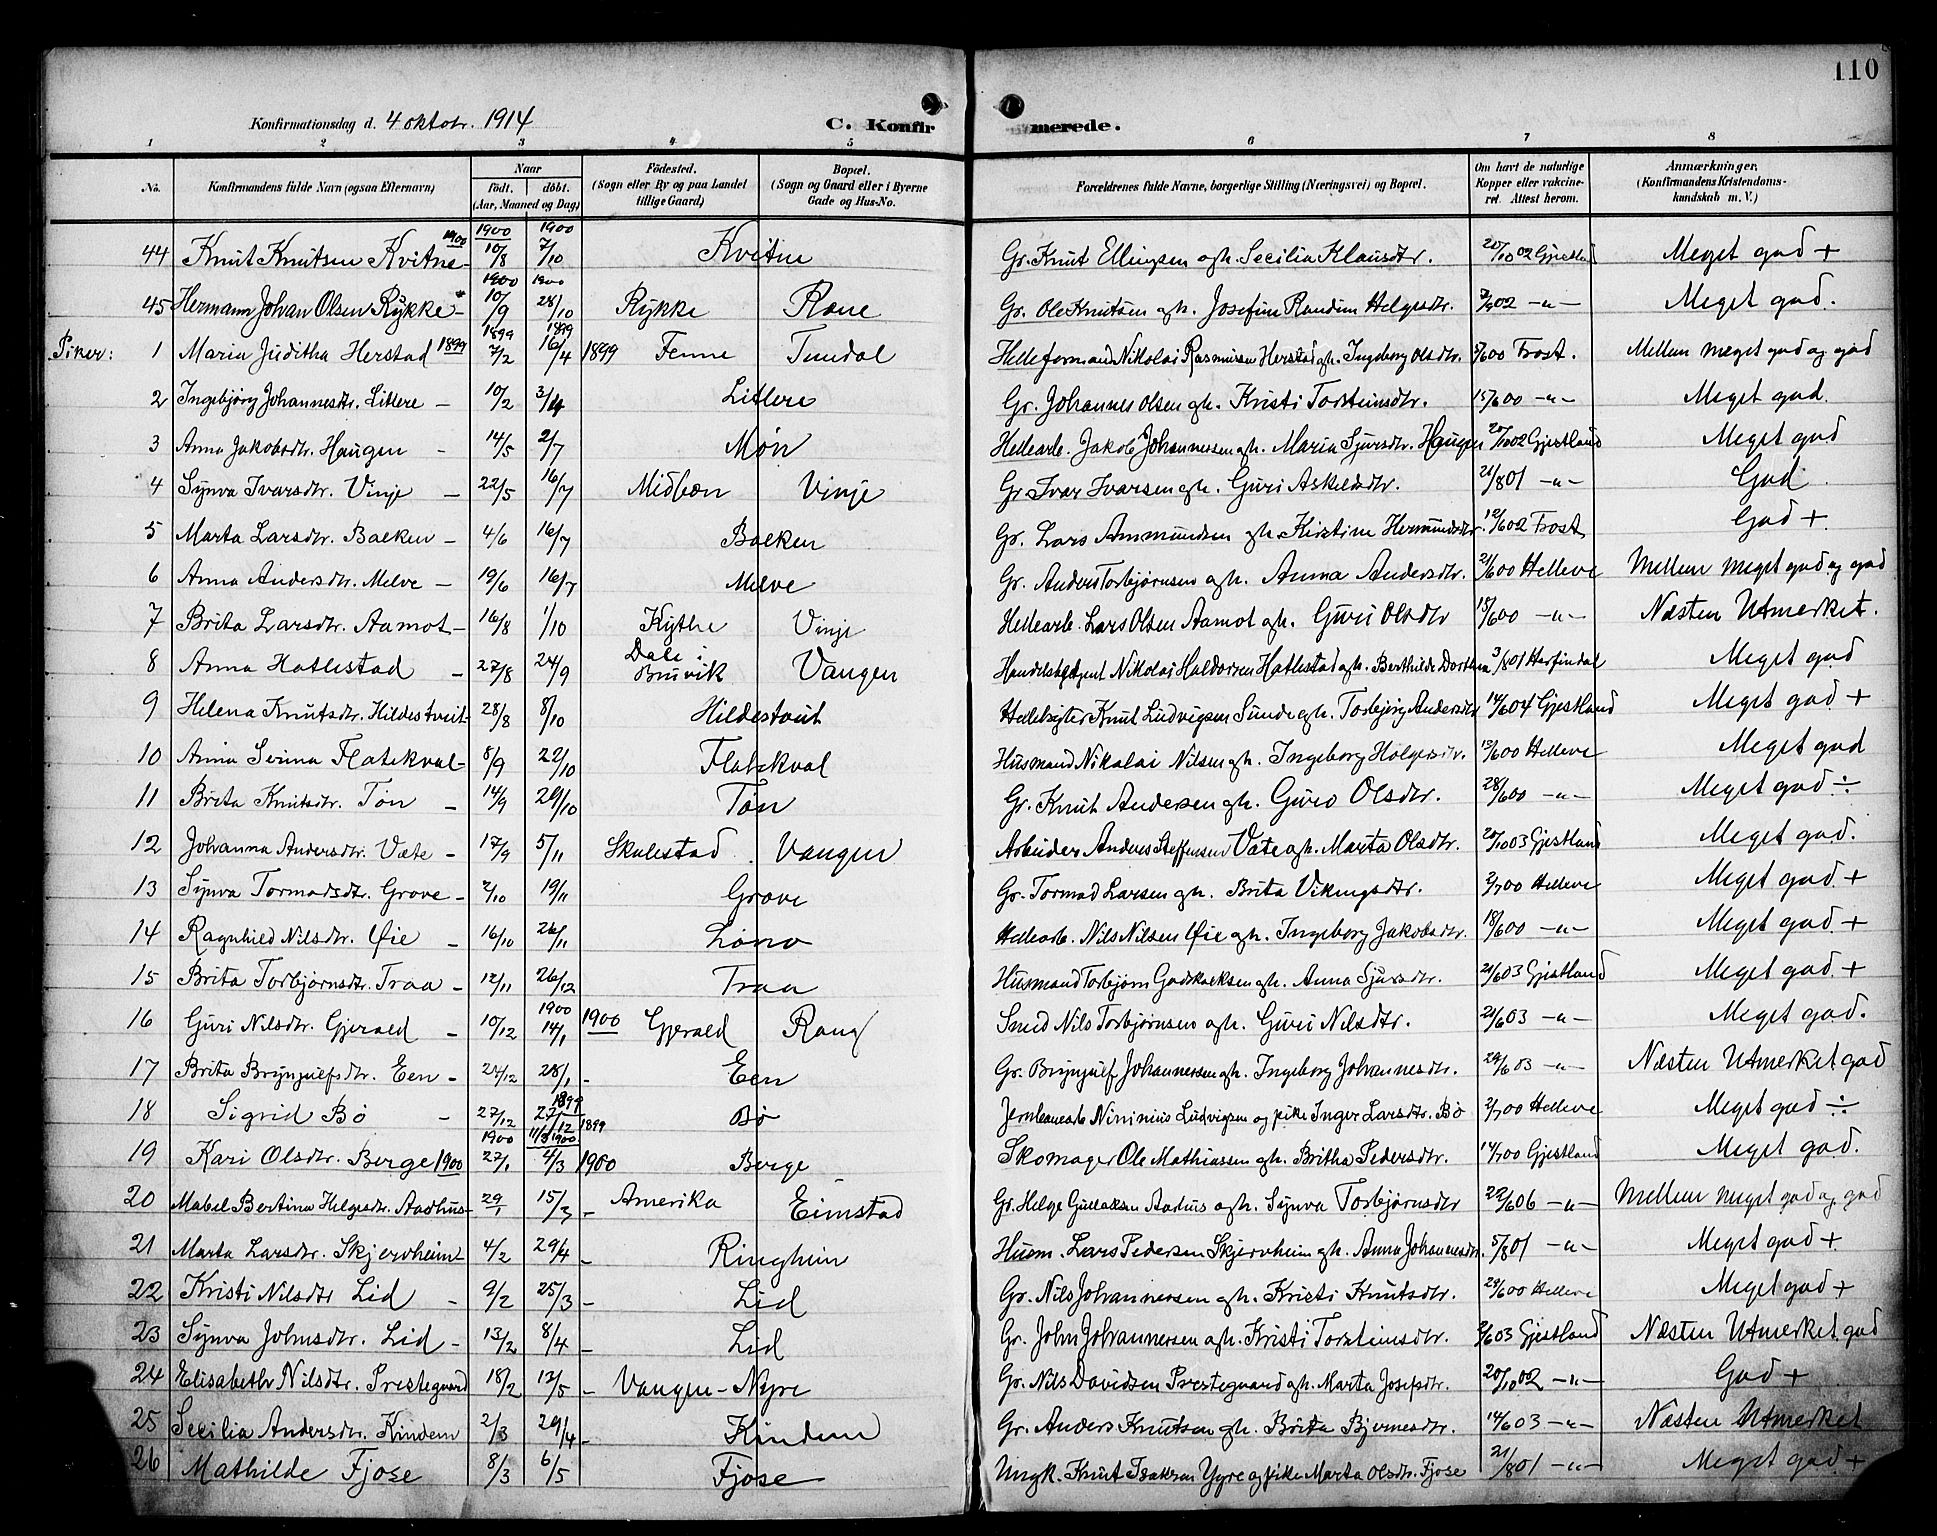 110
Konfirmationsdag d. 4 oktobr. 1914
C. Konfirmerede.
1 2 3 4 5 6 7 8
No. Konfirmandens fulde Navn (ogsaa Efternavn) Naar født. døbt. (Aar, Maaned og Dag) Födested. (Sogn eller By og paa Landet tillige Gaard) Bopæl. (Sogn og Gaard eller i Byerne Gade og Hus-No. Forældrenes fulde Navne, borgerlige Stilling (Næringsvei) og Bopæl. Om havt de naturlige Kopper eller vakcineret. Attest herom. Anmærkninger, (Konfirmandens Kristendomskundskab m. V.)
44 Knut Knutsen Kvitne 1900 1900 10/8 1900 7/10 Kvitne Gr. Knut Ellingsen og h. Secilia Klausdtr. 20/10 02 Gjestland Meget god +
45 Hermann Johan Olsen Rykke 1900 10/9 1900 28/10 Rykke Rone Gr. Ole Knutsen og h. Josefine Randine Helgesdtr. Meget god.
Piker: 1 Maria Juditha Herstad 1899 1899 7/2 1899 16/4 1899 Fenne Tundal Helleformand Nikolai Rasmusen Herstad og h. Ingeborg Olsdtr. Trost. Mellem meget god og god
2 Ingebjørg Johannesdtr. Littere - 10/2 3/4 Littere Gr. Johannes Olsen og h. Kristi Torsteinsdtr. 15/6 00 -"- Meget god.
3 Anna Jakobsdtr. Haugen - 14/5 2/7 Møn Hellearb. Jakob Johannessen og h. Maria Sjursdtr. Haugen 20/10 02 Gjestland Meget god
4 Synva Ivarsdtr. Vinje - 22/5 16/7 Midtbøn Vinje Gr. Ivar Ivarsen og h. Guri Askeldsdtr. 21/8 01 -"- God
5 Marta Larsdtr. Bakken - 4/6 16/7 Bakken Gr. Lars Ammundsen og h. Kristine Hermundsdtr. 12/6 02 Trost God +
6 Anna Andersdtr. Melve - 19/6 16/7 Melve Gr. Anders Torbjørnsen og h. Anna Andersdtr. 21/6 00 Helleve Mellem meget god og god
7 Brita Larsdtr. Aamot - 16/8 1/10 Kythe Vinje Hellearb. Lars Olsen Aamot og h. Guri Olsdtr 18/6 00 -"- Næsten Utmerket.
8 Anna Hatlestad - 27/8 24/9 Dale i Bruvik Vangen Handelsagent Nikolai Haldorsen Hatlestad og h. Berthilde Dorthea 3/8 01 Meget god
9 Helena Knutsdtr. Hildestveit - 28/8 8/10 Hildestveit Knut Ludvigsen Sunde og h. Torbjørg Andersdtr 14/6 04 Gjestland Meget god +
10 Anna Serina Flatekval - 8/9 22/10 Flatekval Husmand Nikolai Nilsen og h. Ingeborg Holgersdtr. 13/6 00 Helleve Meget god
11 Brita Knutsdtr. Tøn - 14/9 29/10 Tøn Gr. Knut Andersen og h. Guro Olsdtr. 28/6 00 -"- Meget god ÷
12 Johanna Andersdtr. Væte - 17/9 5/11 Skulestad Vangen Arbeider Anders Steffensen Væte og h. Marta Olsdtr. 20/10 03 Gjestland Meget god.
13 Synva Tormodsdtr. Grove - 2/10 19/11 Grove Gr. Tormod Larsen og h. Brita Vikingsdtr. 2/7 00 Helleve Meget god +
14 Ragnhild Nilsdtr. Øie - 16/10 26/11 Lono Hellearb. Nils Nilsen Øie og h. Ingeborg Jakobsdtr. 18/6 00 -"- Meget god +
15 Brita Torbjørnsdtr. Traa - 12/11 26/12 Traa Husmand Torbjørn Godskalksen og h. Anna Sjursdtr. 21/6 03 Gjestland Meget god +
16 Guri Nilsdtr. Gjerald - 10/12 1900 14/1 1900 Gjerald Rong Smed Nils Torbjørnsen og h. Guri Nilsdtr. 21/6 03 -"- Meget god.
17 Brita Brynjulfsdtr. Een - 21/12 28/1 - Een Gr. Brynjulf Johannessen og h. Ingeborg Johannesdtr. 29/6 03 -"- Næsten Utmerket god
18 Sigrid Bø - 27/12 1899 27/12 11/3 1900 1899 Bø Jernbanearb Ninnius Ludvigsen og pike Inger Larsdtr. Bø 2/7 00 Helleve Meget god ÷
19 Kari Olsdtr. Berge 1900 1900 27/1 4/3 1900 Berge Skomager Ole Mathiassen og h. Britha Pedersdtr. 14/7 00 Gjestland Meget god.
20 Mabel Bertina Helgesdtr. Aarhus - 29/1 15/3 - Amerika Eimstad Gr. Helge Gullaksen Aarhus og h. Synva Torbjørnsdtr 22/6 06 -"- Mellem meget god og god
21 Marta Larsdtr. Skjerveheim 4/2 29/4 - Ringheim Husm. Lars Pedersen Skjervheim og h. Anna Johannesdtr. 5/8 01 -"- Meget god +
22 Kristi Nilsdtr Lid - 9/2 25/3 - Lid Gr. Nils Johannessen og h. Kristi Knutsdtr. 23/6 00 Helleve Meget god +
23 Synva Johnsdtr. Lid - 13/2 8/4 - Lid Gr. John Johannessen og h. Kristi Torsteinsdtr. Gjestland Næsten Utmerket god
24 Elisabeth Nilsdtr. Prestegaard 18/2 13/5 - Vangen - Nyre Gr. Nils Davidsen Prestegaard og h. Marta Josefsdtr. 20/10 02 -"- God +
25 Secilia Andersdtr. Kindem 2/3 29/4 - Kindem Gr. Anders Knutsen og h. Brita Bjørnesdtr. 14/6 03 -"- Næsten Utmerket
26 Mathilde Fjose 8/3 6/5 Fjose Ungk. Knut Isaksen Ygre og pike Marta Olsdtr. Fjose 21/8 01 -"- Meget god +